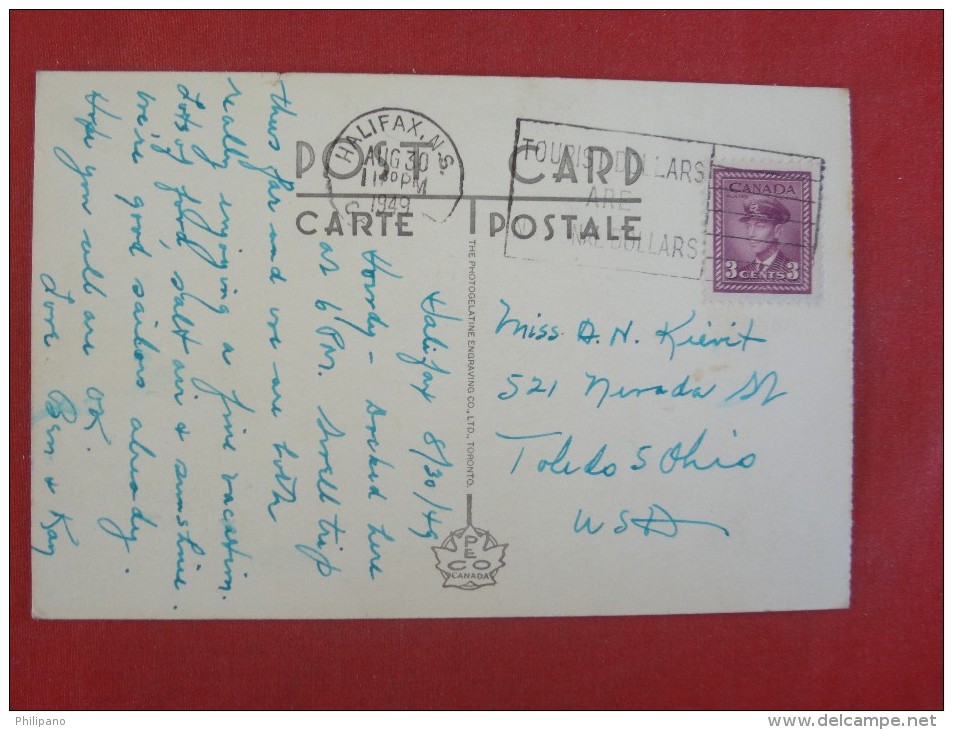 HALIFAX, N.S.
AUG 30
11 30 PM
1949
TOURIST DOLLARS
ARE
NAL DOLLARS
POST CARD
CARTE POSTALE
CANADA
3 CENTS 3
Halifax 8/30/49
Howdy - Docked here
at 6 PM. Swell trip
thus far and we are both
really enjoying a fine vacation.
Lots of food, salt air & sunshine.
We're good sailors already.
Hope you all are OK.
Love
Ben & Kay
THE PHOTOGELATINE ENGRAVING CO., LTD., TORONTO.
PECO
CANADA
Miss A. N. Kievit
521 Nevada St
Toledo 5 Ohio
USA
Philipano
www.delcampe.net